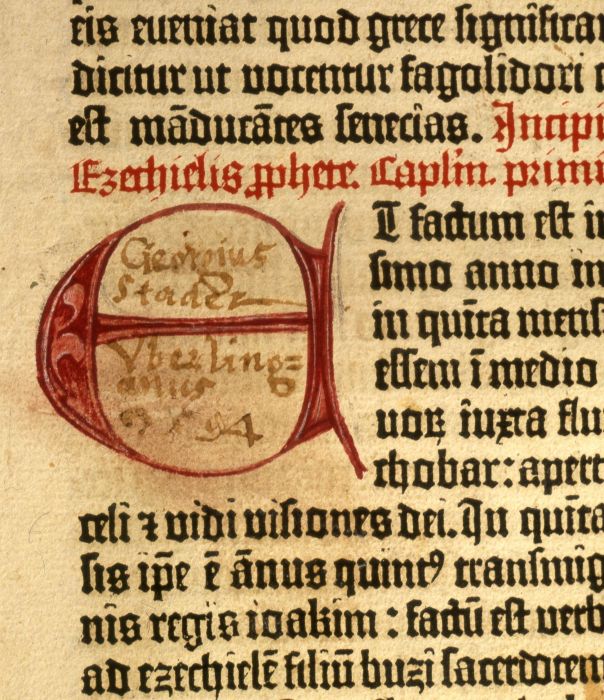 eis eueniat quod grece significa
dicitur ut vocentur fagolidori
est māducātes senecias. Incipi
Ezechielis ꝓphete. Caplm̄. primu
E T factum est in
simo anno in
in quīta mens
essem ī medio
uoꝝ iuxta flu
chobar: apert
celi ⁊ vidi visiones dei. In quīta
sis ip̄e ē ānus quintꝰ transmig
nis regis ioakim: factū est verb
ad ezechielē filiū buzi sacerdotem
Georgius
Stader
Vberling=
anus